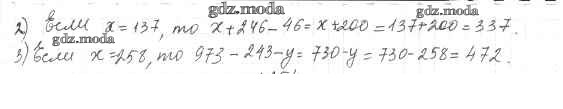 gdz.moda
gdz.moda
2) если x = 137, то x + 246 - 46 = x + 200 = 137 + 200 = 337.
gdz.moda
3) если x = 258, то 973 - 243 - y = 730 - y = 730 - 258 = 472.